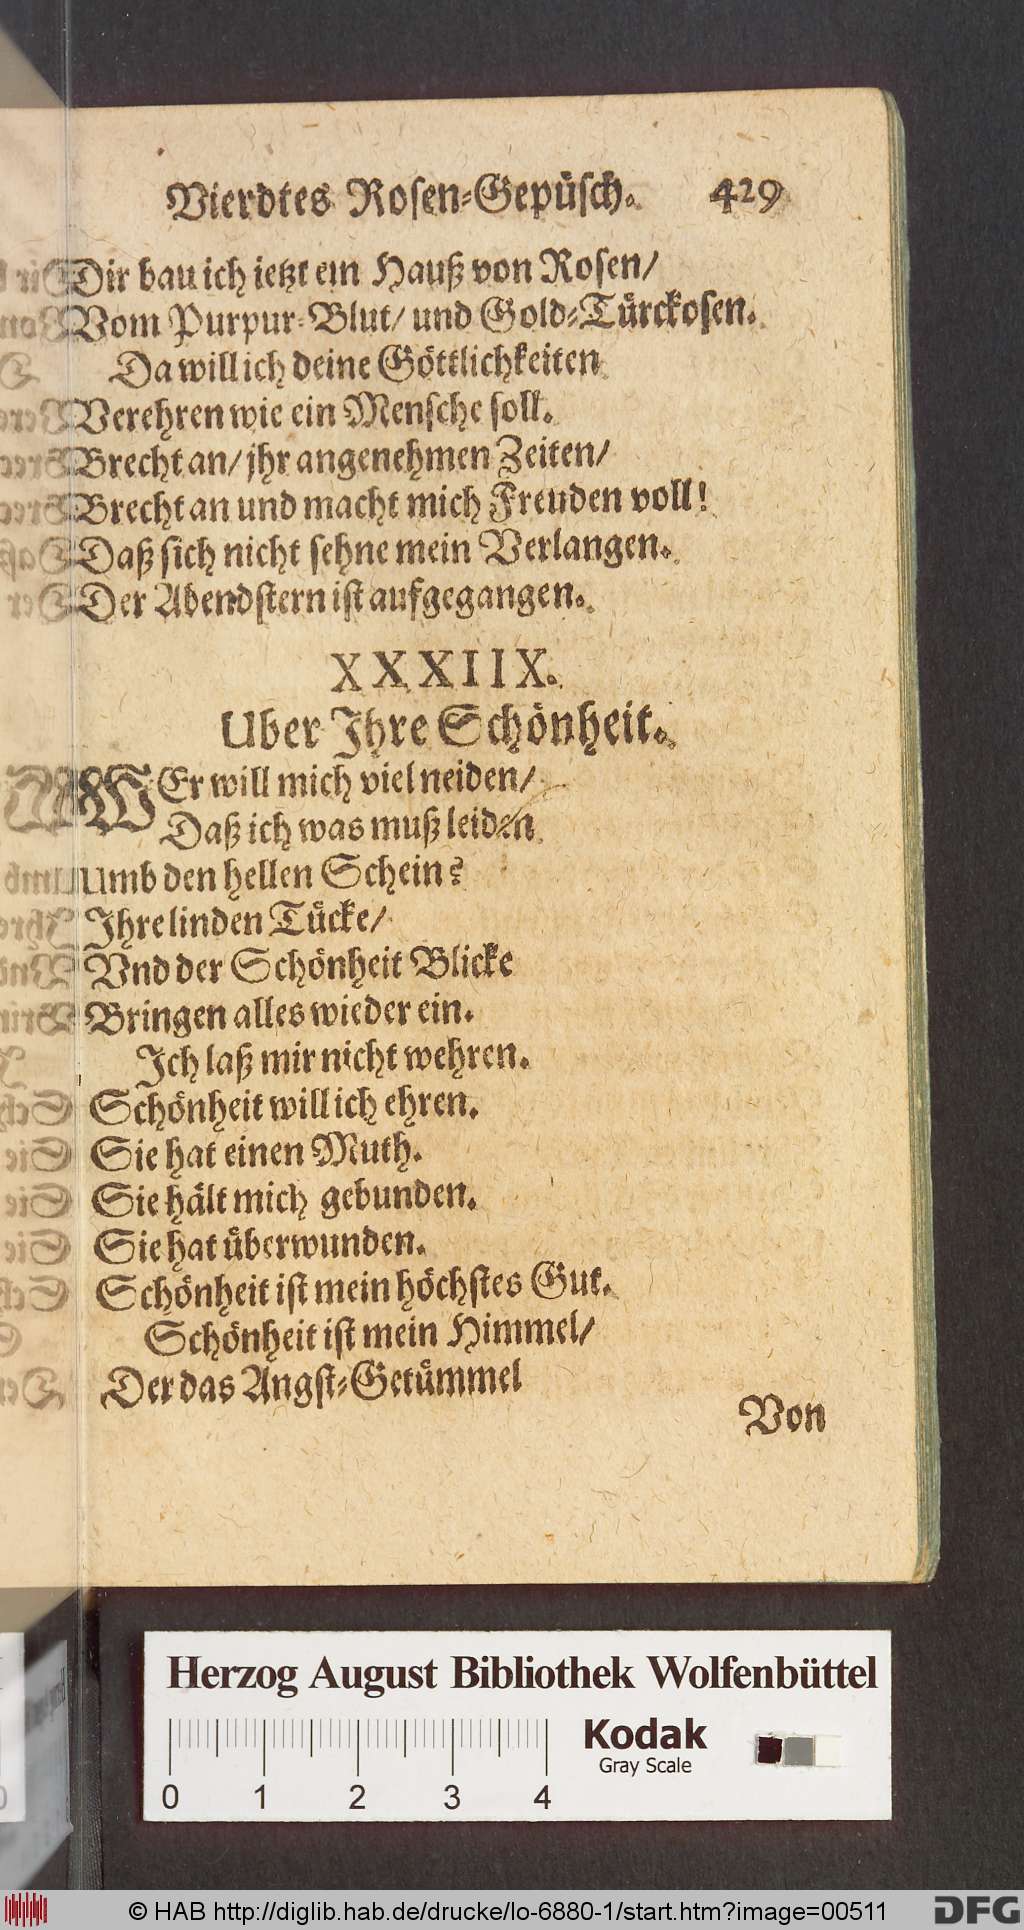 Vierdtes Roſen-Gepüſch. 429
Dir bau ich ietzt ein Hauß von Roſen/
Vom Purpur-Blut/ und Gold-Türckoſen.
Da will ich deine Göttlichkeiten
Verehren wie ein Menſche ſoll.
Brecht an/ jhr angenehmen Zeiten/
Brecht an und macht mich Freuden voll!
Daß ſich nicht ſehne mein Verlangen.
Der Abendſtern iſt aufgegangen.
XXXIIX.
Uber Ihre Schönheit.
WEr will mich viel neiden/
Daß ich was muß leiden
Umb den hellen Schein?
Ihre linden Tücke/
Vnd der Schönheit Blicke
Bringen alles wieder ein.
Ich laß mir nicht wehren.
Schönheit will ich ehren.
Sie hat einen Muth.
Sie hält mich gebunden.
Sie hat überwunden.
Schönheit iſt mein höchſtes Gut.
Schönheit iſt mein Himmel/
Der das Angſt-Getümmel
Von
Herzog August Bibliothek Wolfenbüttel
Kodak
Gray Scale
0 1 2 3 4
© HAB http://diglib.hab.de/drucke/lo-6880-1/start.htm?image=00511
DFG